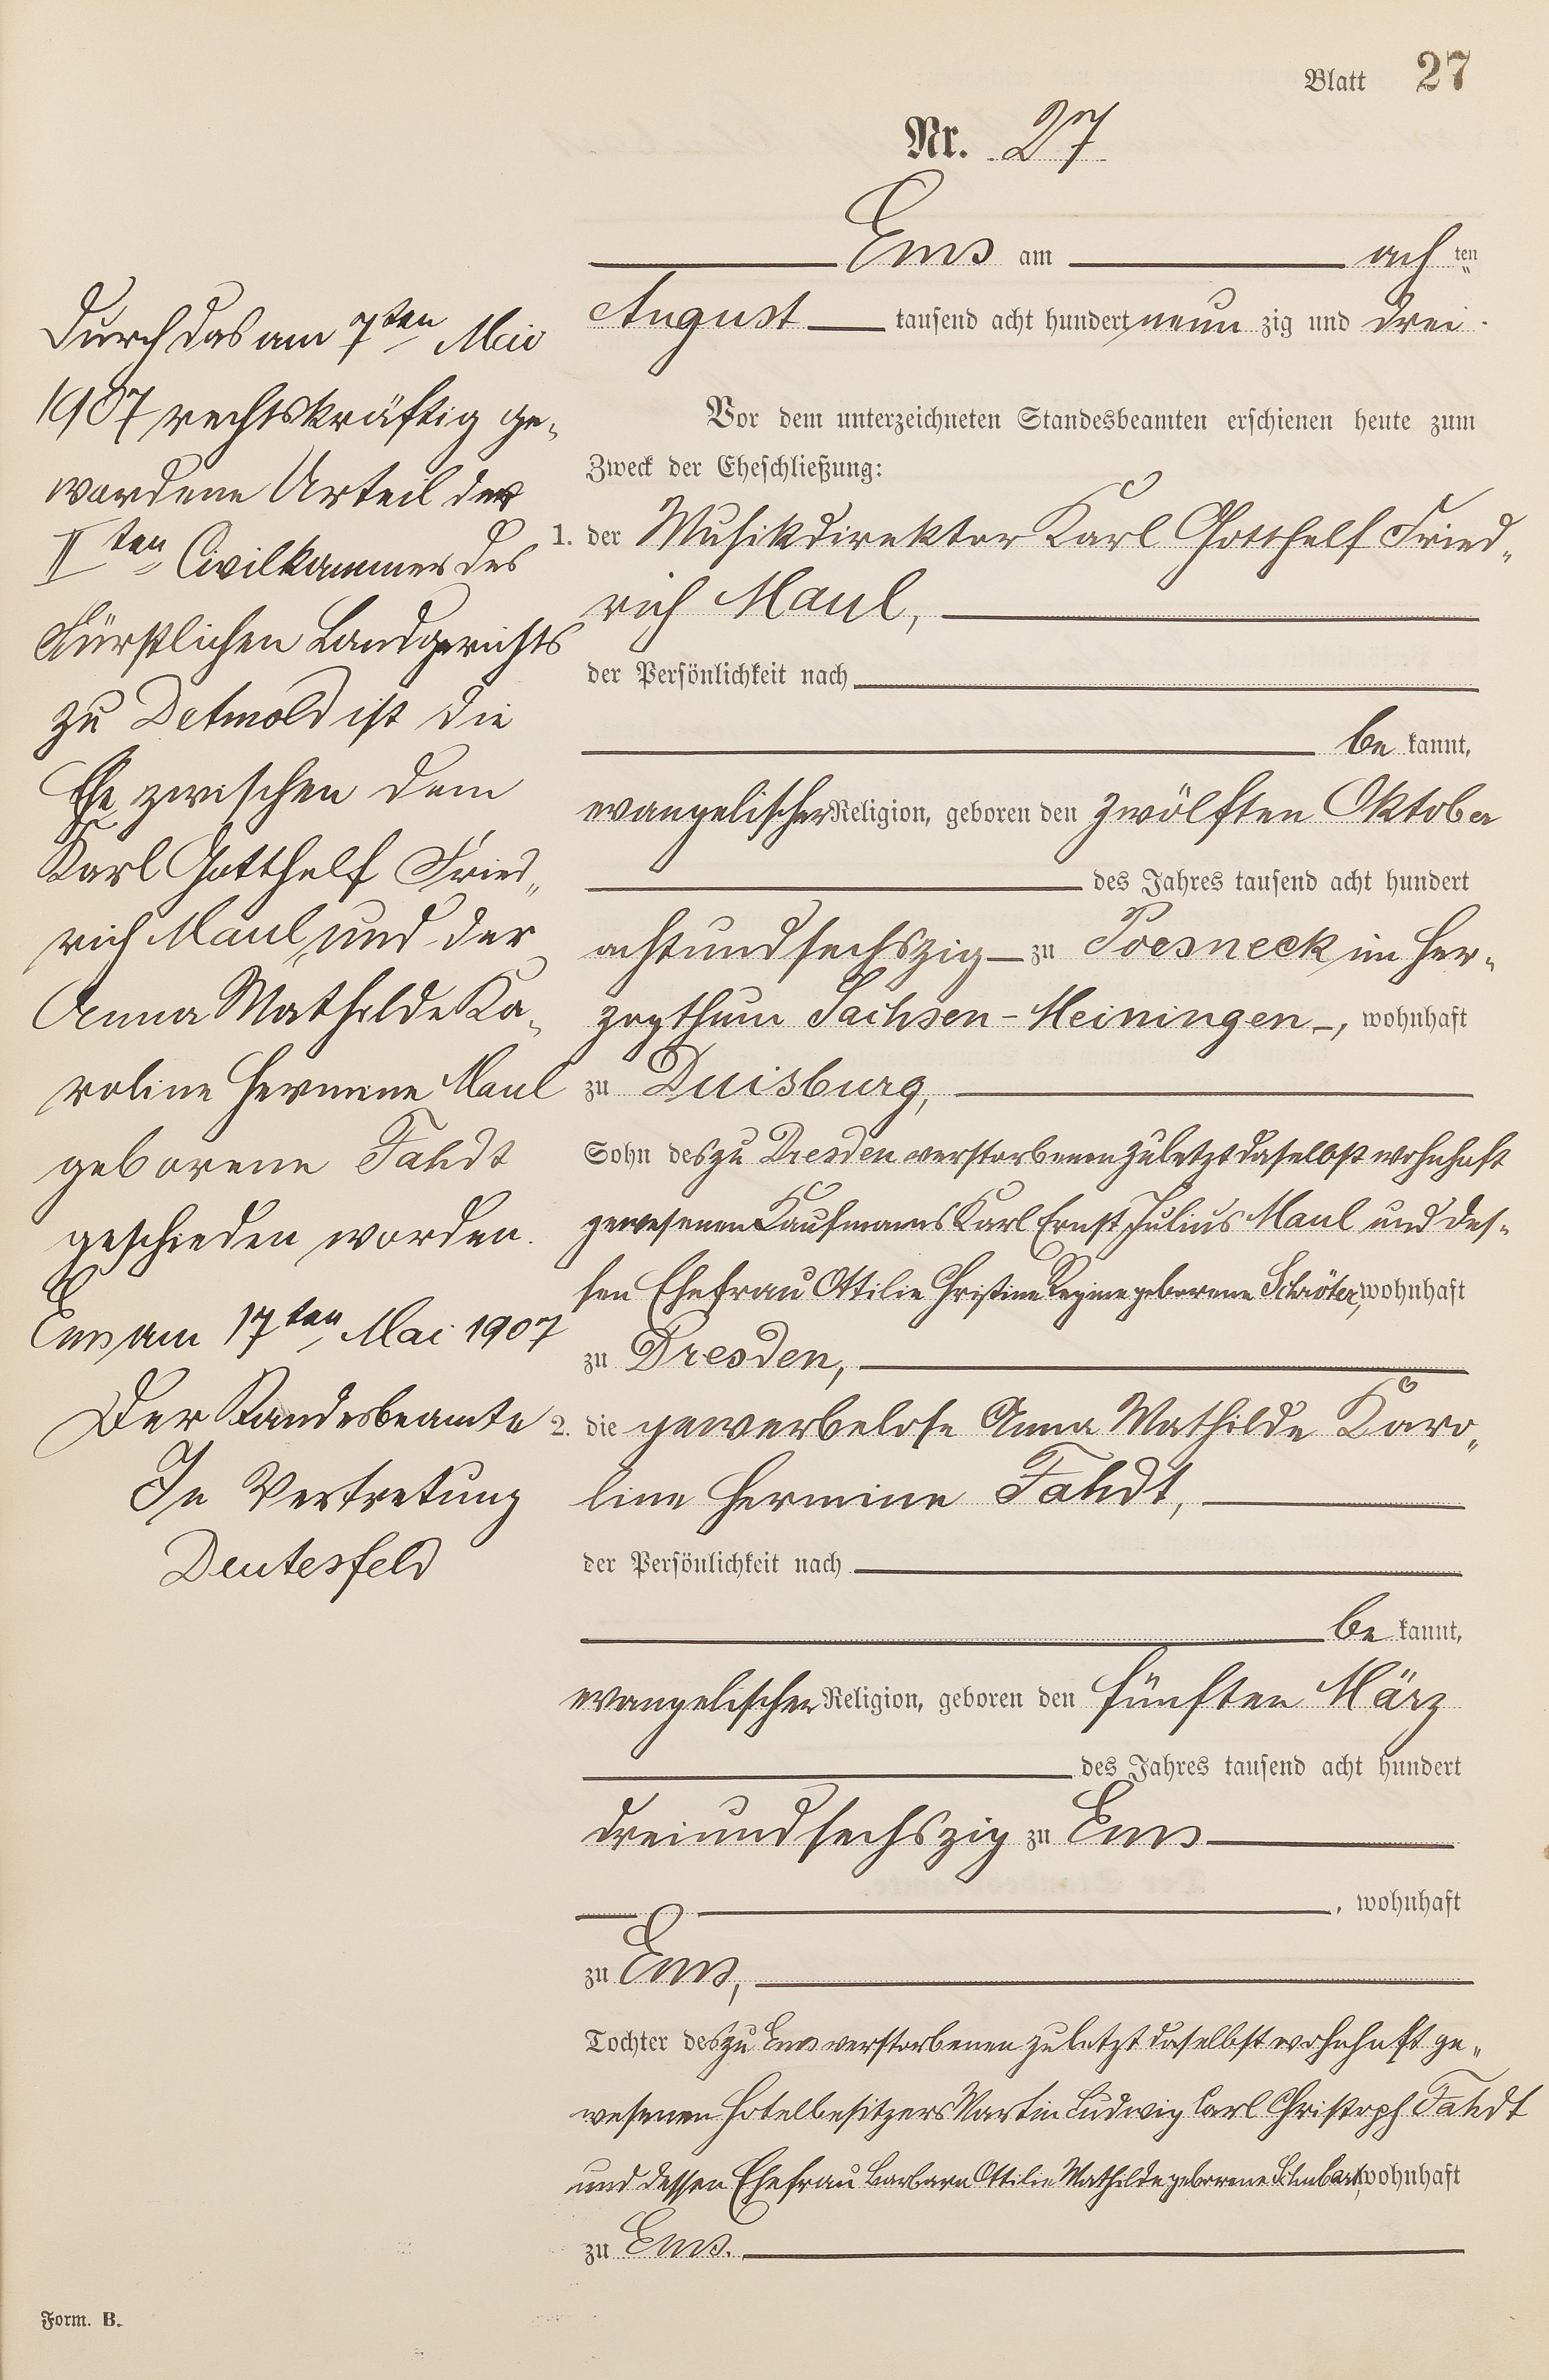 Blatt 27
Nr. 27
Ems am ach ten
August tausend acht hundert neun zig und drei.
Vor dem unterzeichneten Standesbeamten erschienen heute zum
Zweck der Eheschließung:
1. der Musikdirektor Karl Gotthelf Fried„
rich Maul,
der Persönlichkeit nach
be kannt,
evangelischer Religion, geboren den zwölften Oktober
des Jahres tausend acht hundert
achtundsechszig zu Poesneck im Her„
zogthum Sachsen-Meiningen, wohnhaft
zu Duisburg,
Sohn des zu Dresden verstorbenen zuletzt daselbst wohnhaft
gewesenen Kaufmanns Karl Ernst Julius Maul und des„
sen Ehefrau Ottilie Christine Regine geborene Schröter, wohnhaft
zu Dresden,
2. die gewerbelose Anna Mathilde Karo„
line Hermine Fahdt,
der Persönlichkeit nach
be kannt,
evangelischer Religion, geboren den fünften März
des Jahres tausend acht hundert
dreiundsechszig zu Ems
, wohnhaft
zu Ems,
Tochter des zu Ems verstorbenen zuletzt daselbst wohnhaft ge„
wesenen Hotelbesitzers Martin Ludwig Carl Christoph Fahdt
und dessen Ehefrau Barbara Ottilie Mathilde geborene wohnhaft
zu Ems.
Durch das am 7ten Mai
1907 rechtskräftig ge„
wordene Urteil der
IIten Civilkammer des
Fürstlichen Landgerichts
zu Detmold ist die
Ehe zwischen dem
Karl Gotthelf Fried„
rich Maul und der
Anna Mathilde Ka„
roline Hermine Maul
geborene Fahdt
geschieden worden.
Ems am 17ten Mai 1907
Der Standesbeamte
In Vertretung
Deutesfeld
Form. B.